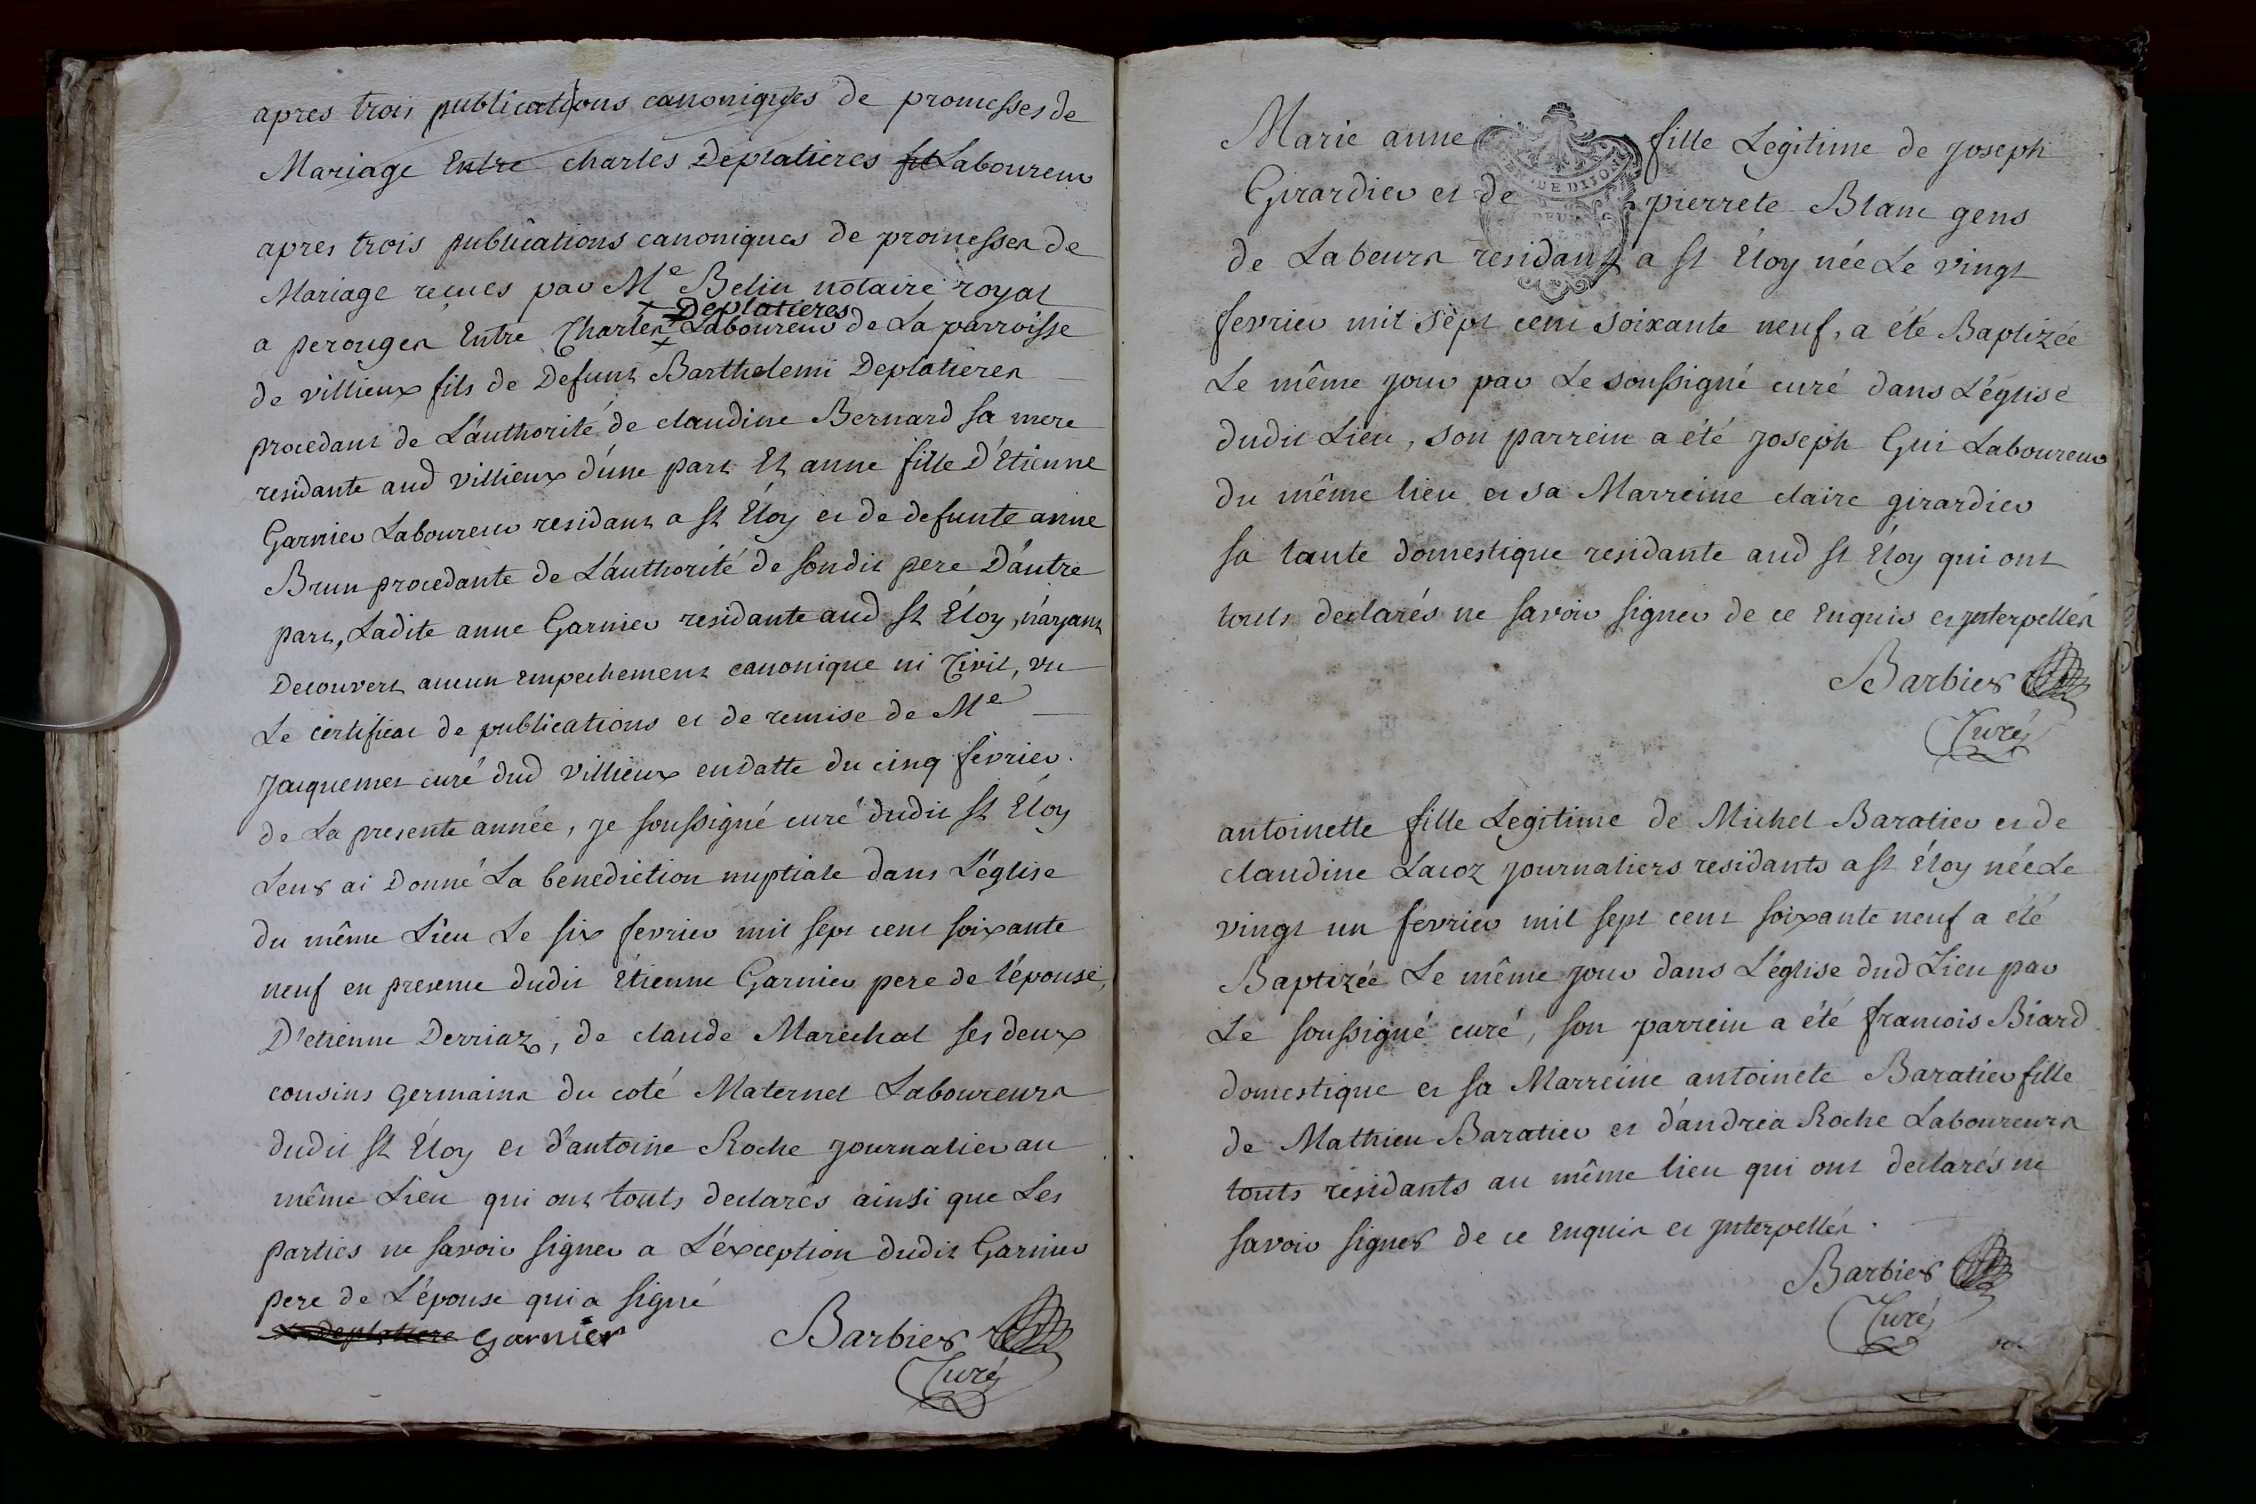 apres trois publications canoniques de promesses de
Mariage Entre charles Deplatieres fil Laboureur
apres trois publications canoniques de promesses de
Mariage reçues par Me Belin notaire royal
Deplatieres
a perouges Entre Charles Laboureur de La parroisse
de villieux fils de Defunt Barthelemi Deplatieres
procedant de L'authorité de claudine Bernard sa mere
residante aud villieux d'une part Et anne fille D'Etienne
Garnier Laboureur residant a st Éloy et de defunte anne
Brun procedante de L'authorité de sondit pere D'autre
part, Ladite anne Garnier residante aud st Éloy, n'ayant
Decouvert aucun empechement canonique ni Civil, vu
Le certificat de publications et de remise de Me
Jacquemet curé dud villieux en datte du cinq fevrier
de La presente année, je soussigné curé dudit st Éloy
Leur ai Donné La benediction nuptiale dans L'église
du même Lieu Le six fevrier mil sept cent soixante
neuf en presence dudit Etienne Garnier pere de l'épouse,
D'etienne Derriaz, de claude Marechal ses deux
cousins germains du coté Maternel Laboureurs
dudit st Éloy et d'antoine Roche journalier au
même Lieu qui ont touts declarés ainsi que Les
parties ne savoir signer a L'éxception dudit Garnier
pere de L'épouse qui a signé
deplatiere garnier Barbier
Curé
Marie anne fille Legitime de joseph
Girardier et de pierrete Blanc gens
de Labeurs residants a st Éloy née Le vingt
fevrier mil sept cent soixante neuf, a été Baptizée
Le même jour par Le soussigné curé dans L'église
dudit Lieu, son parrein a été joseph Gui Laboureur
du même lieu et sa Marreine claire girardier
sa tante domestique residante aud st Éloy qui ont
touts declarés ne savoir signer de ce Enquis et jnterpellés
Barbier
Curé
antoinette fille Legitime de Michel Baratier et de
claudine Lacoz journaliers residants a st Éloy née Le
vingt un fevrier mil sept cent soixante neuf a été
Baptizée Le même jour dans L'église dud Lieu par
Le soussigné curé, son parrein a été francois Biard
domestique et sa Marreine antoinete Baratier fille
de Mathieu Baratier et d'andrea Roche Laboureurs
touts residants au même lieu qui ont declarés ne
savoir signer de ce enquis et jnterpellés.
Barbier
Curé